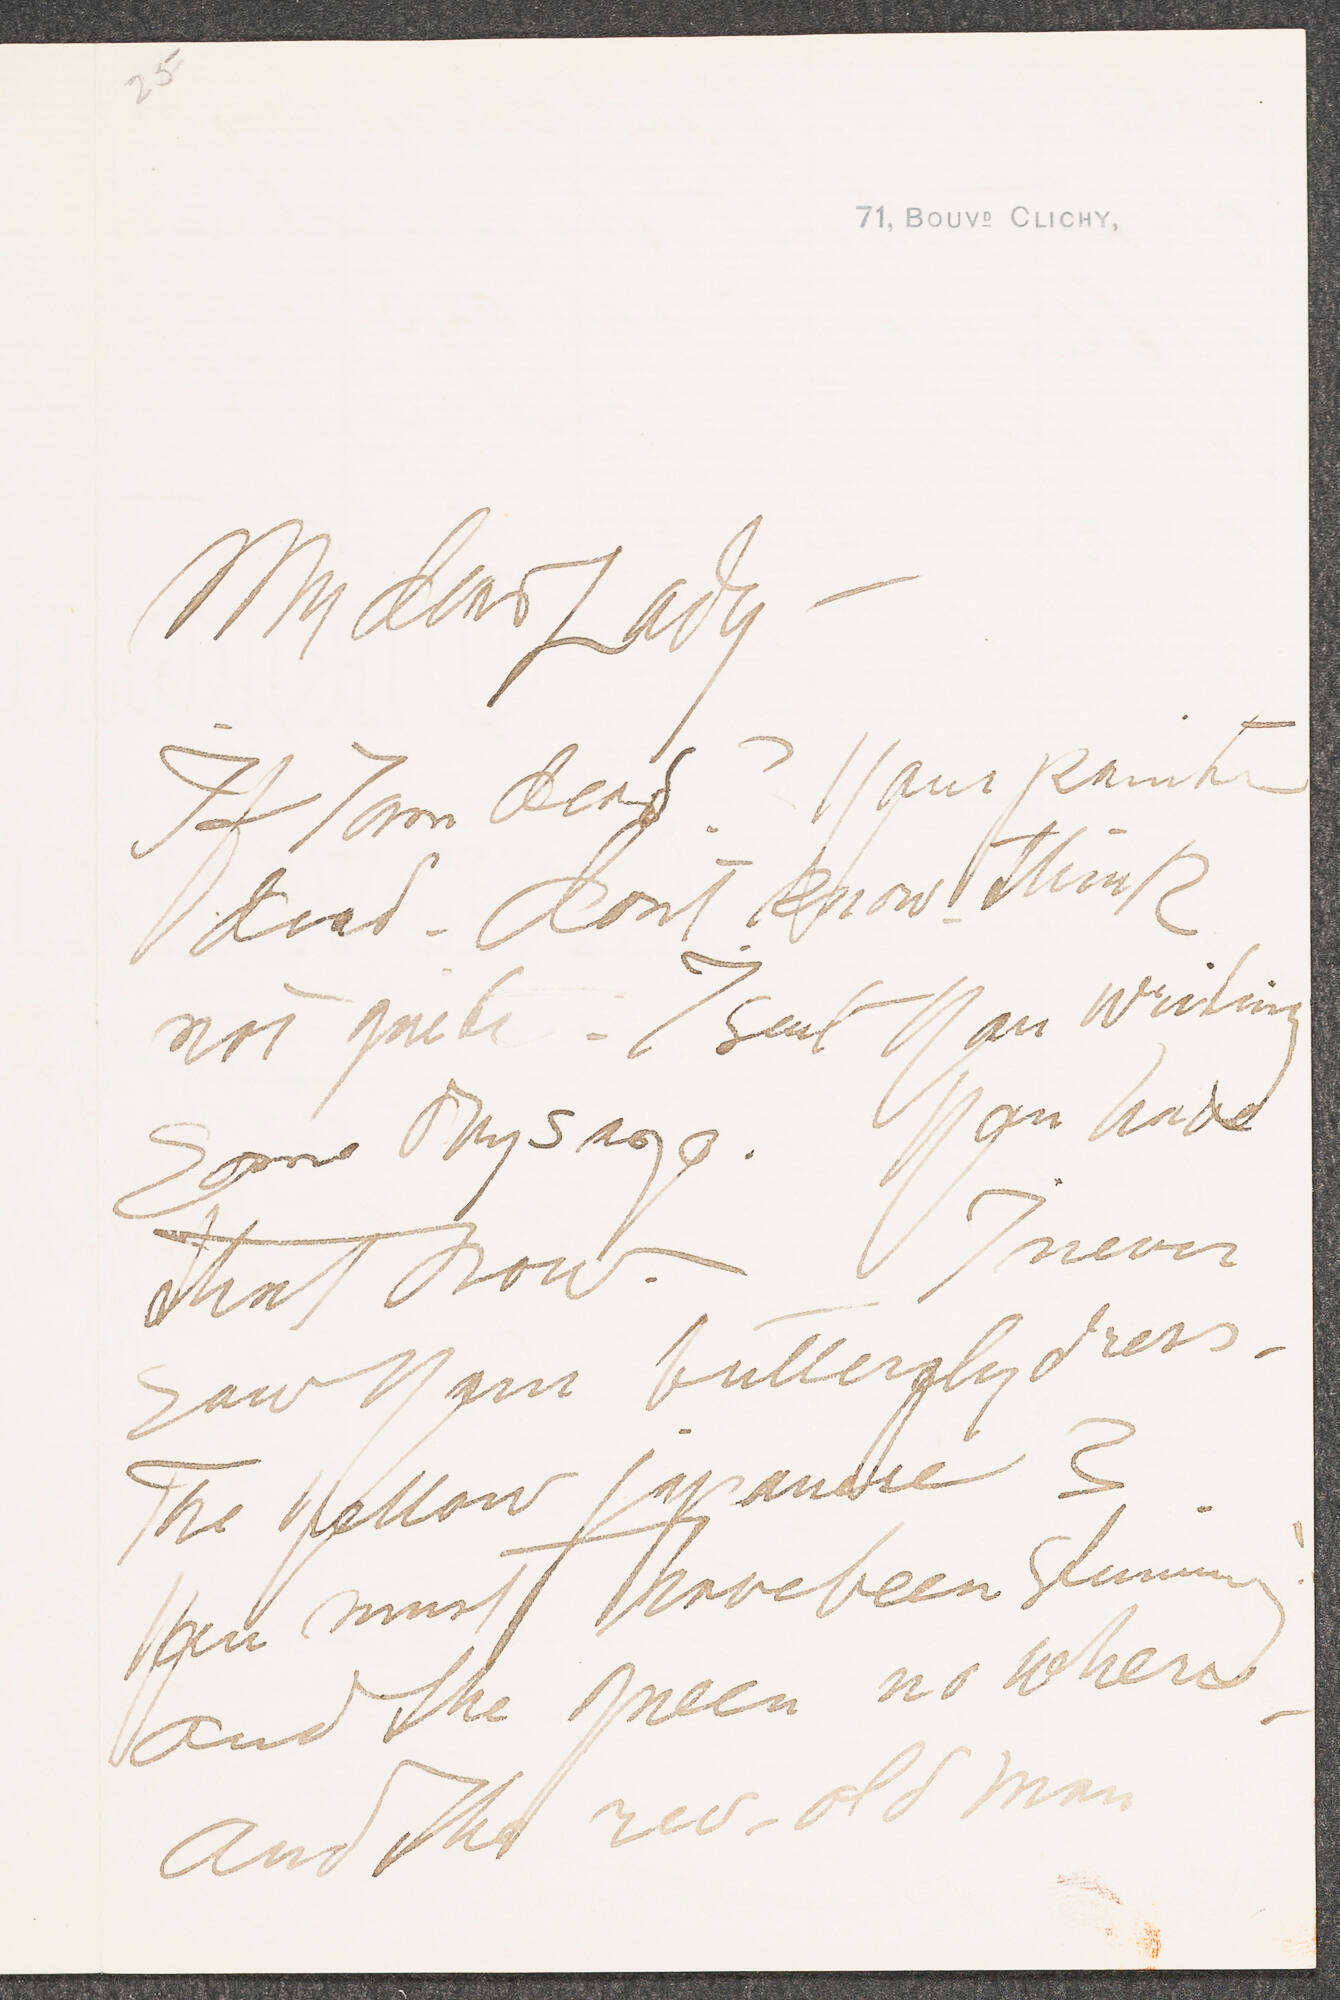 25
71, BOUVD CLICHY,
My dear Lady —
If I am dead? Your painter
dead - dont know - think
not quite - I sent you writing
some days ago. You have
that now. — I never
saw your butterfly dress -
The yellow japanese?
You must have been stunning!
and the queen no where -
and the rev. old man